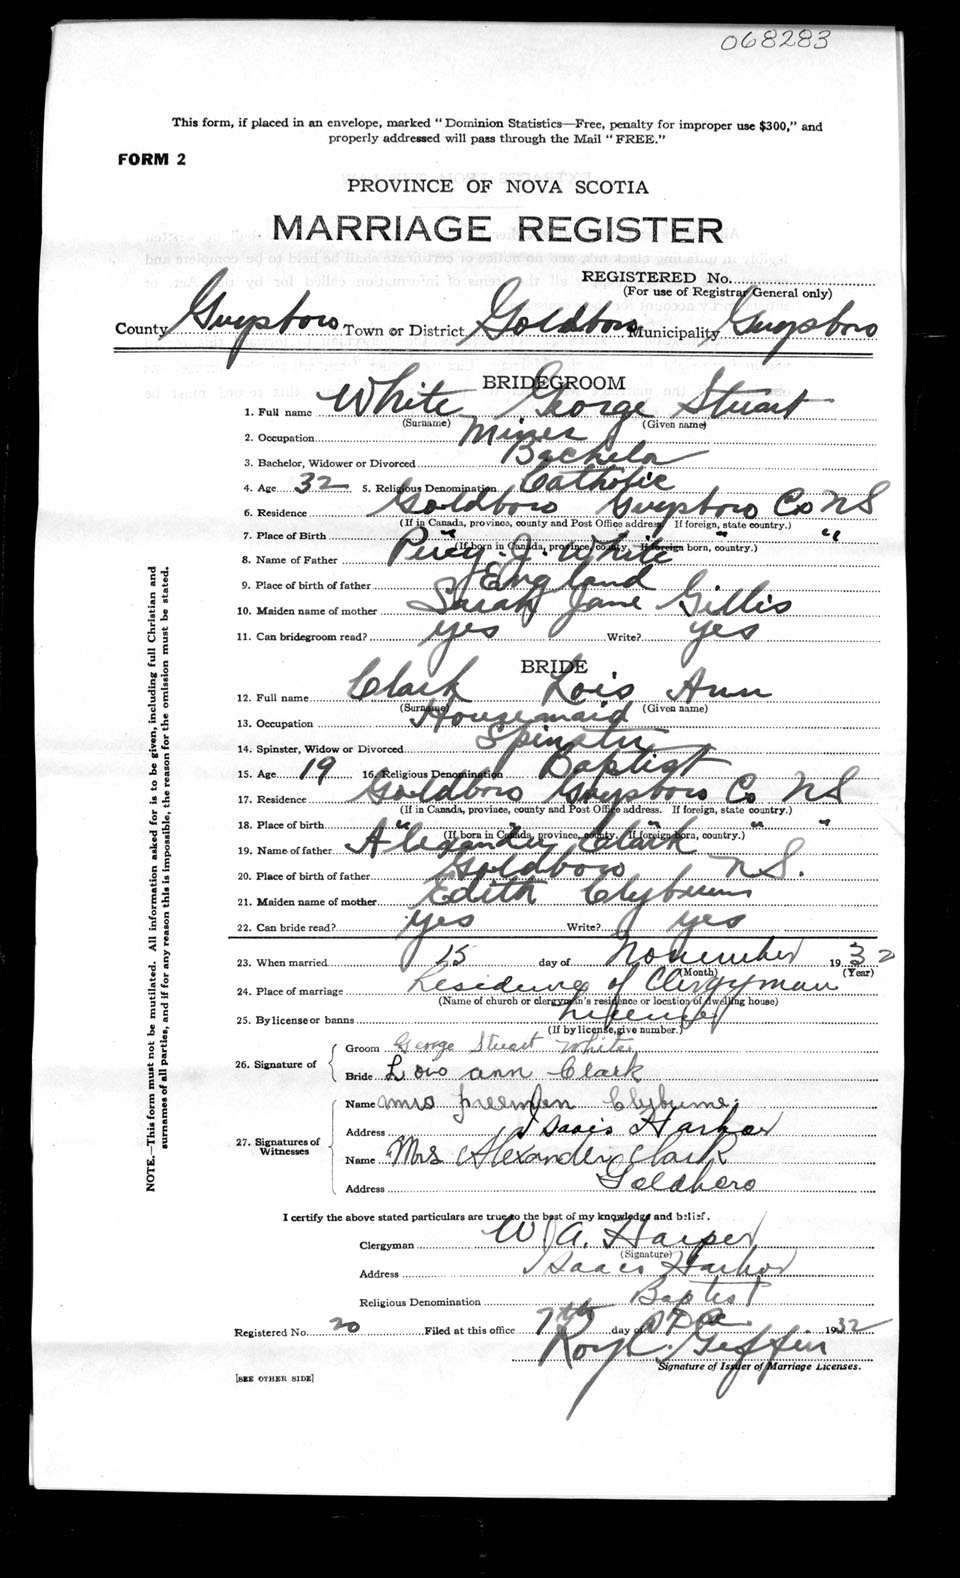 068283
This form, if placed in an envelope, marked "Dominion Statistics—Free, penalty for improper use $300," and
properly addressed will pass through the Mail "FREE."
FORM 2
PROVINCE OF NOVA SCOTIA
MARRIAGE REGISTER
REGISTERED No.
(For use of Registrar General only)
County Guysboro Town or District Goldboro Municipality Guysboro
BRIDEGROOM
1. Full name White George Stuart
(Surname) (Given name)
2. Occupation Miner
3. Bachelor, Widower or Divorced Bachelor
4. Age 32 5. Religious Denomination Catholic
6. Residence Goldboro Guysboro Co NS
(If in Canada, province, county and Post Office address. If foreign, state country.)
7. Place of Birth " " "
(If born in Canada, province, county. If foreign born, country.)
8. Name of Father Percy J. White
9. Place of birth of father England
10. Maiden name of mother Sarah Jane Gillis
11. Can bridegroom read? yes Write? yes
BRIDE
12. Full name Clark Lois Ann
(Surname) (Given name)
13. Occupation Housemaid
14. Spinster, Widow or Divorced Spinster
15. Age 19 16. Religious Denomination Baptist
17. Residence Goldboro Guysboro Co NS
(If in Canada, province, county and Post Office address. If foreign, state country.)
18. Place of birth " " " "
(If born in Canada, province, county. If foreign born, country.)
19. Name of father Alexander Clark
20. Place of birth of father Goldboro N.S.
21. Maiden name of mother Edith Clyburn
22. Can bride read? yes Write? yes
23. When married 15 day of November 1932
(Month) (Year)
24. Place of marriage Residence of Clergyman
(Name of church or clergyman's residence or location of dwelling house)
25. By license or banns License
(If by license, give number.)
26. Signature of
Groom George Stuart White
Bride Lois ann Clark
27. Signatures of
Witnesses
Name Mrs freeman Clyburne
Address Isaacs Harbor
Name Mrs Alexander Clark
Address Goldboro
I certify the above stated particulars are true to the best of my knowledge and belief.
Clergyman W. A. Harper
(Signature)
Address Isaacs Harbor
Religious Denomination Baptist
Registered No. 20 Filed at this office 7th day of Dec 1932
Roy C. Giffin
Signature of Issuer of Marriage Licenses.
[SEE OTHER SIDE]
NOTE.—This form must not be mutilated. All information asked for is to be given, including full Christian and
surnames of all parties, and if for any reason this is impossible, the reason for the omission must be stated.